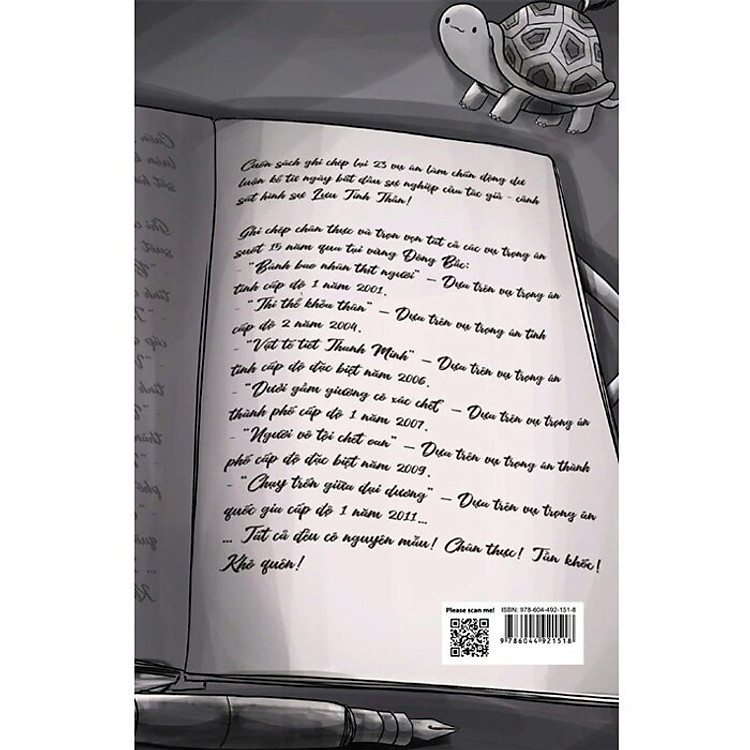 Cuốn sách ghi chép lại 23 vụ án làm chấn động dư
luận kể từ ngày bắt đầu sự nghiệp của tác giả - cảnh
sát hình sự Lưu Tinh Thần!
Ghi chép chân thực và trọn vẹn tất cả các vụ trọng án
suốt 15 năm qua tại vùng Đông Bắc:
- "Bánh bao nhân thịt người" – Dựa trên vụ trọng án
tỉnh cấp độ 1 năm 2001.
- "Thi thể khỏa thân" – Dựa trên vụ trọng án tỉnh
cấp độ 2 năm 2004.
- "Vật tế tiết Thanh Minh" – Dựa trên vụ trọng án
tỉnh cấp độ đặc biệt năm 2006.
- "Dưới gầm giường có xác chết" – Dựa trên vụ trọng án
thành phố cấp độ 1 năm 2007.
- "Người vô tội chết oan" – Dựa trên vụ trọng án thành
phố cấp độ đặc biệt năm 2009.
- "Chạy trốn giữa đại dương" – Dựa trên vụ trọng án
quốc gia cấp độ 1 năm 2011...
... Tất cả đều có nguyên mẫu! Chân thực! Tàn khốc!
Khó quên!
Please scan me!
ISBN: 978-604-492-151-8
9 786044 921518